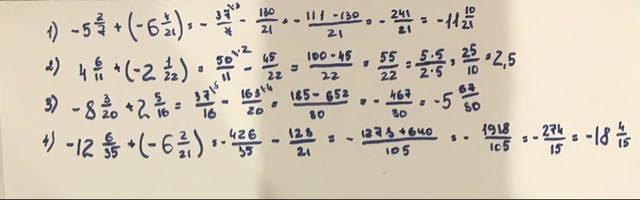 1) -5 2/7 + (-6 4/21) = - 37/7 ·3 - 130/21 = - 111 - 130/21 = - 241/21 = -11 10/21
2) 4 6/11 + (-2 1/22) = 50/11 ·2 - 45/22 = 100-45/22 = 55/22 = 5·5/2·5 = 25/10 = 2,5
3) -8 3/20 + 2 5/16 = 37/16 ·5 - 163/20 ·4 = 185-652/80 = - 467/80 = -5 67/80
4) -12 6/35 + (-6 2/21) = - 426/35 - 128/21 = - 1278+640/105 = - 1918/105 = - 274/15 = -18 4/15